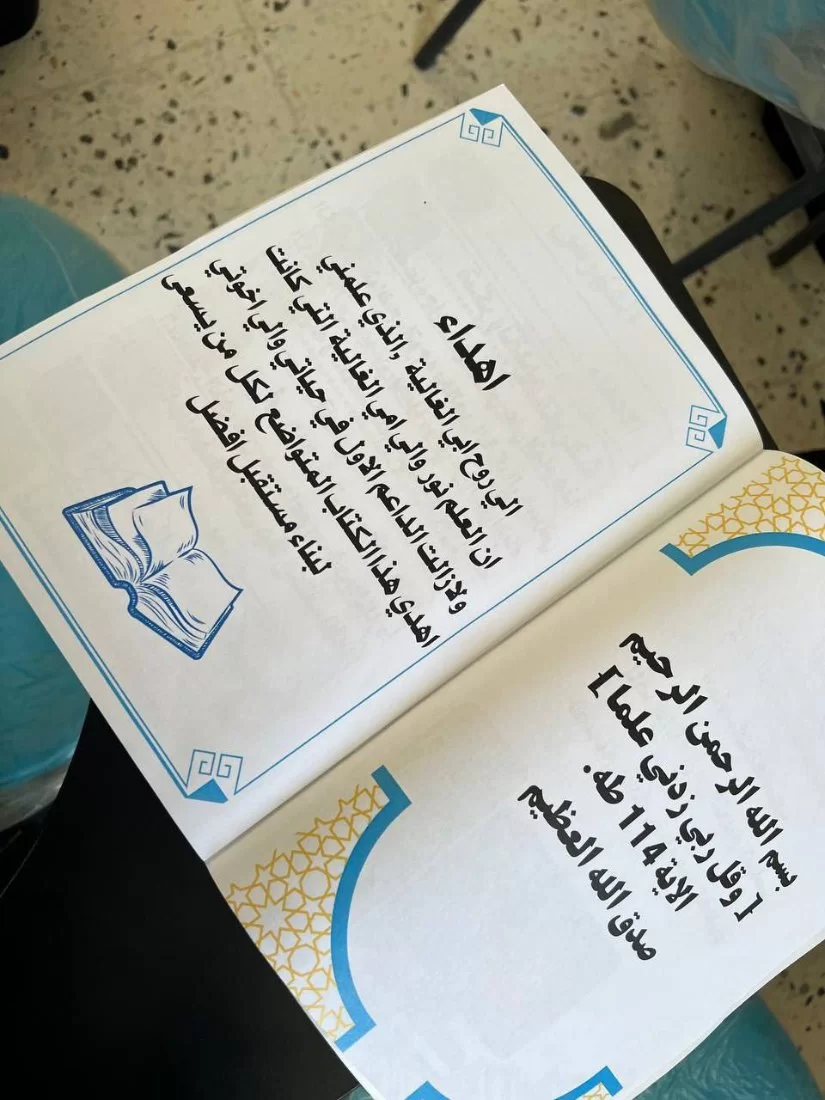 بسم الله الرحمن الرحيم
[وقل ربي زدني علما]
الاية 114 طه
صدق الله العظيم
اهداء
الي روح ابي الغالية والذي علمني
ان العلم نور والي امي الغالية التي كانت
ولازالت الداعم الاول في حياتي والي اخوتي
اهدي هذا الكتاب المتواضع لكل من يسعي
لبناء مستقبل افضل